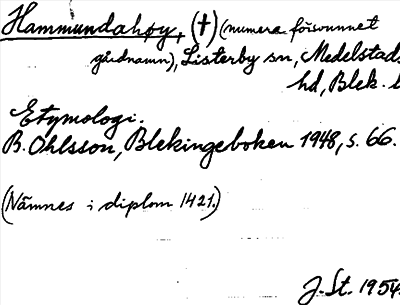 Hammundahøy, (†) (numera försvunnet
gårdnamn), Listerby sn, Medelstads
hd, Blek. l
Etymologi.
B. Ohlsson, Blekingeboken 1948, s. 66.
(Nämnes i diplom 1421.)
J. St. 1954.